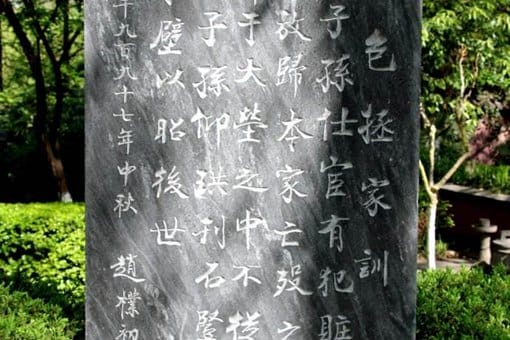 包拯家訓
子孫仕宦有犯賍
放歸本家亡歿之
于大塋之中不從
子孫仰珙刊石豎
壁以昭後世
九百九十七年中秋 趙樸初